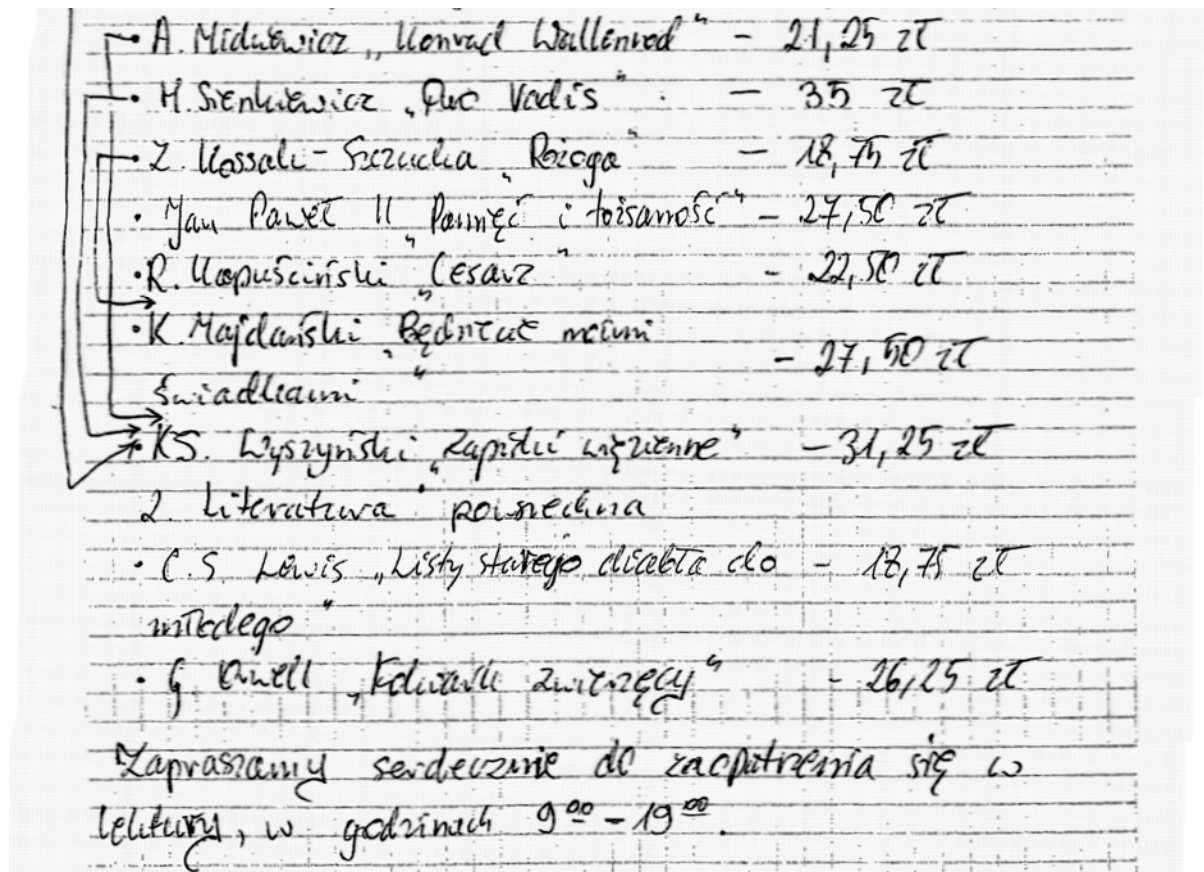 • A. Mickiewicz „Konrad Wallenrod" - 21,25 zł
• H. Sienkiewicz „Quo Vadis" - 35 zł
• Z. Kossak-Szczucka „Pożoga" - 18,75 zł
• Jan Paweł II „Pamięć i tożsamość" - 27,50 zł
• R. Kapuściński „Cesarz" - 22,50 zł
• K. Majdański „Będziecie moimi
świadkami" - 27,50 zł
• KS. Wyszyński „Zapiski więzienne" - 31,25 zł
2. Literatura powszechna
• C.S Lewis „Listy starego diabła do - 18,75 zł
młodego"
• G. Orwell „Folwark zwierzęcy" - 26,25 zł
Zapraszamy serdecznie do zaopatrzenia się w
lektury, w godzinach 9⁰⁰ - 19⁰⁰.